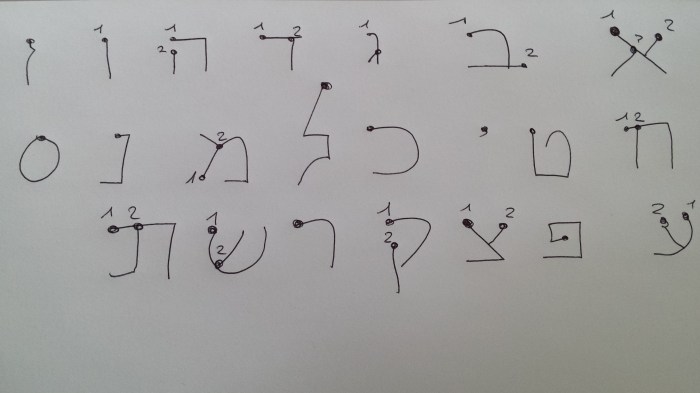 א 1 2 3 ב 1 2 ג 1 ד 1 2 ה 1 2 ו 1 ז
ח 1 2 ט י כ ל מ 1 2 נ ס
ע 1 2 פ צ 1 2 ק 1 2 ר ש 1 2 ת 1 2